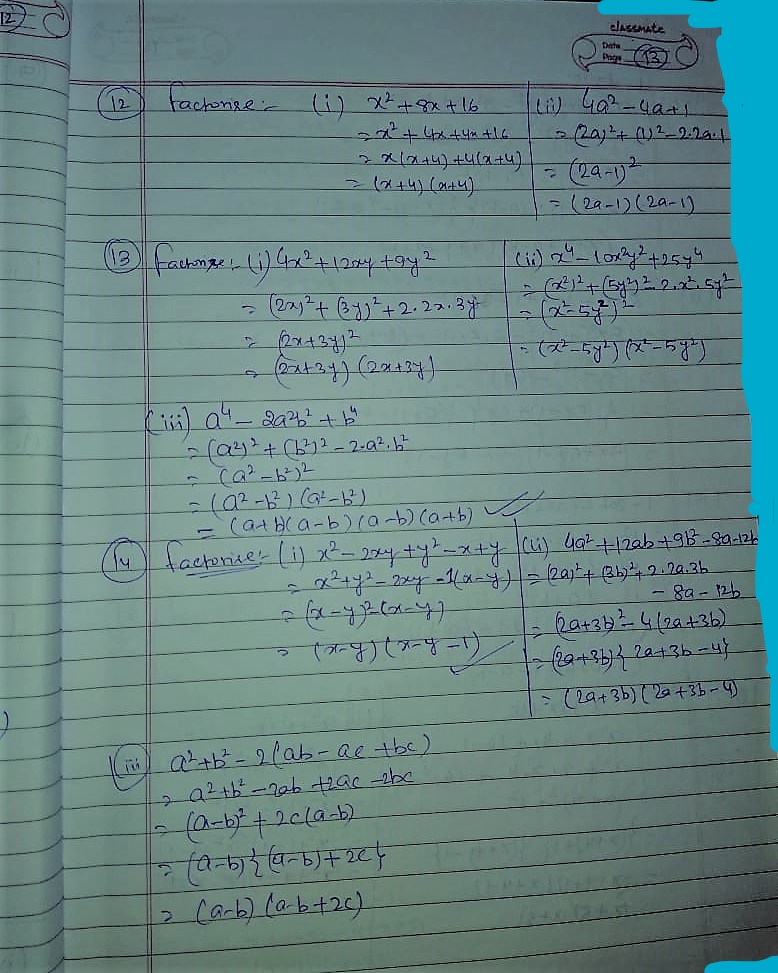 12
classmate
Date
Page 13
12 factorise:- (i) x² + 8x + 16
= x² + 4x + 4x + 16
= x(x+4) + 4(x+4)
= (x+4) (x+4)
(ii) 4a² - 4a + 1
= (2a)² + (1)² - 2·2a·1
= (2a-1)²
= (2a-1) (2a-1)
13 factorize:- (i) 4x² + 12xy + 9y²
= (2x)² + (3y)² + 2·2x·3y
= (2x+3y)²
= (2x+3y) (2x+3y)
(ii) x⁴ - 10x²y² + 25y⁴
= (x²)² + (5y²)² - 2·x²·5y²
= (x² - 5y²)²
= (x² - 5y²) (x² - 5y²)
(iii) a⁴ - 2a²b² + b⁴
= (a²)² + (b²)² - 2·a²·b²
= (a² - b²)²
= (a² - b²) (a² - b²)
= (a+b)(a-b) (a-b) (a+b)
14 factorise:- (i) x² - 2xy + y² - x + y
= x² + y² - 2xy - 1(x-y)
= (x-y)² - (x-y)
= (x-y) (x-y-1)
(ii) 4a² + 12ab + 9b² - 8a - 12b
= (2a)² + (3b)² + 2·2a·3b
- 8a - 12b
= (2a+3b)² - 4(2a+3b)
= (2a+3b) { 2a+3b-4}
= (2a+3b) (2a+3b-4)
(iii) a² + b² - 2(ab - ac + bc)
= a² + b² - 2ab + 2ac - 2bc
= (a-b)² + 2c(a-b)
= (a-b) {(a-b) + 2c}
= (a-b) (a-b+2c)